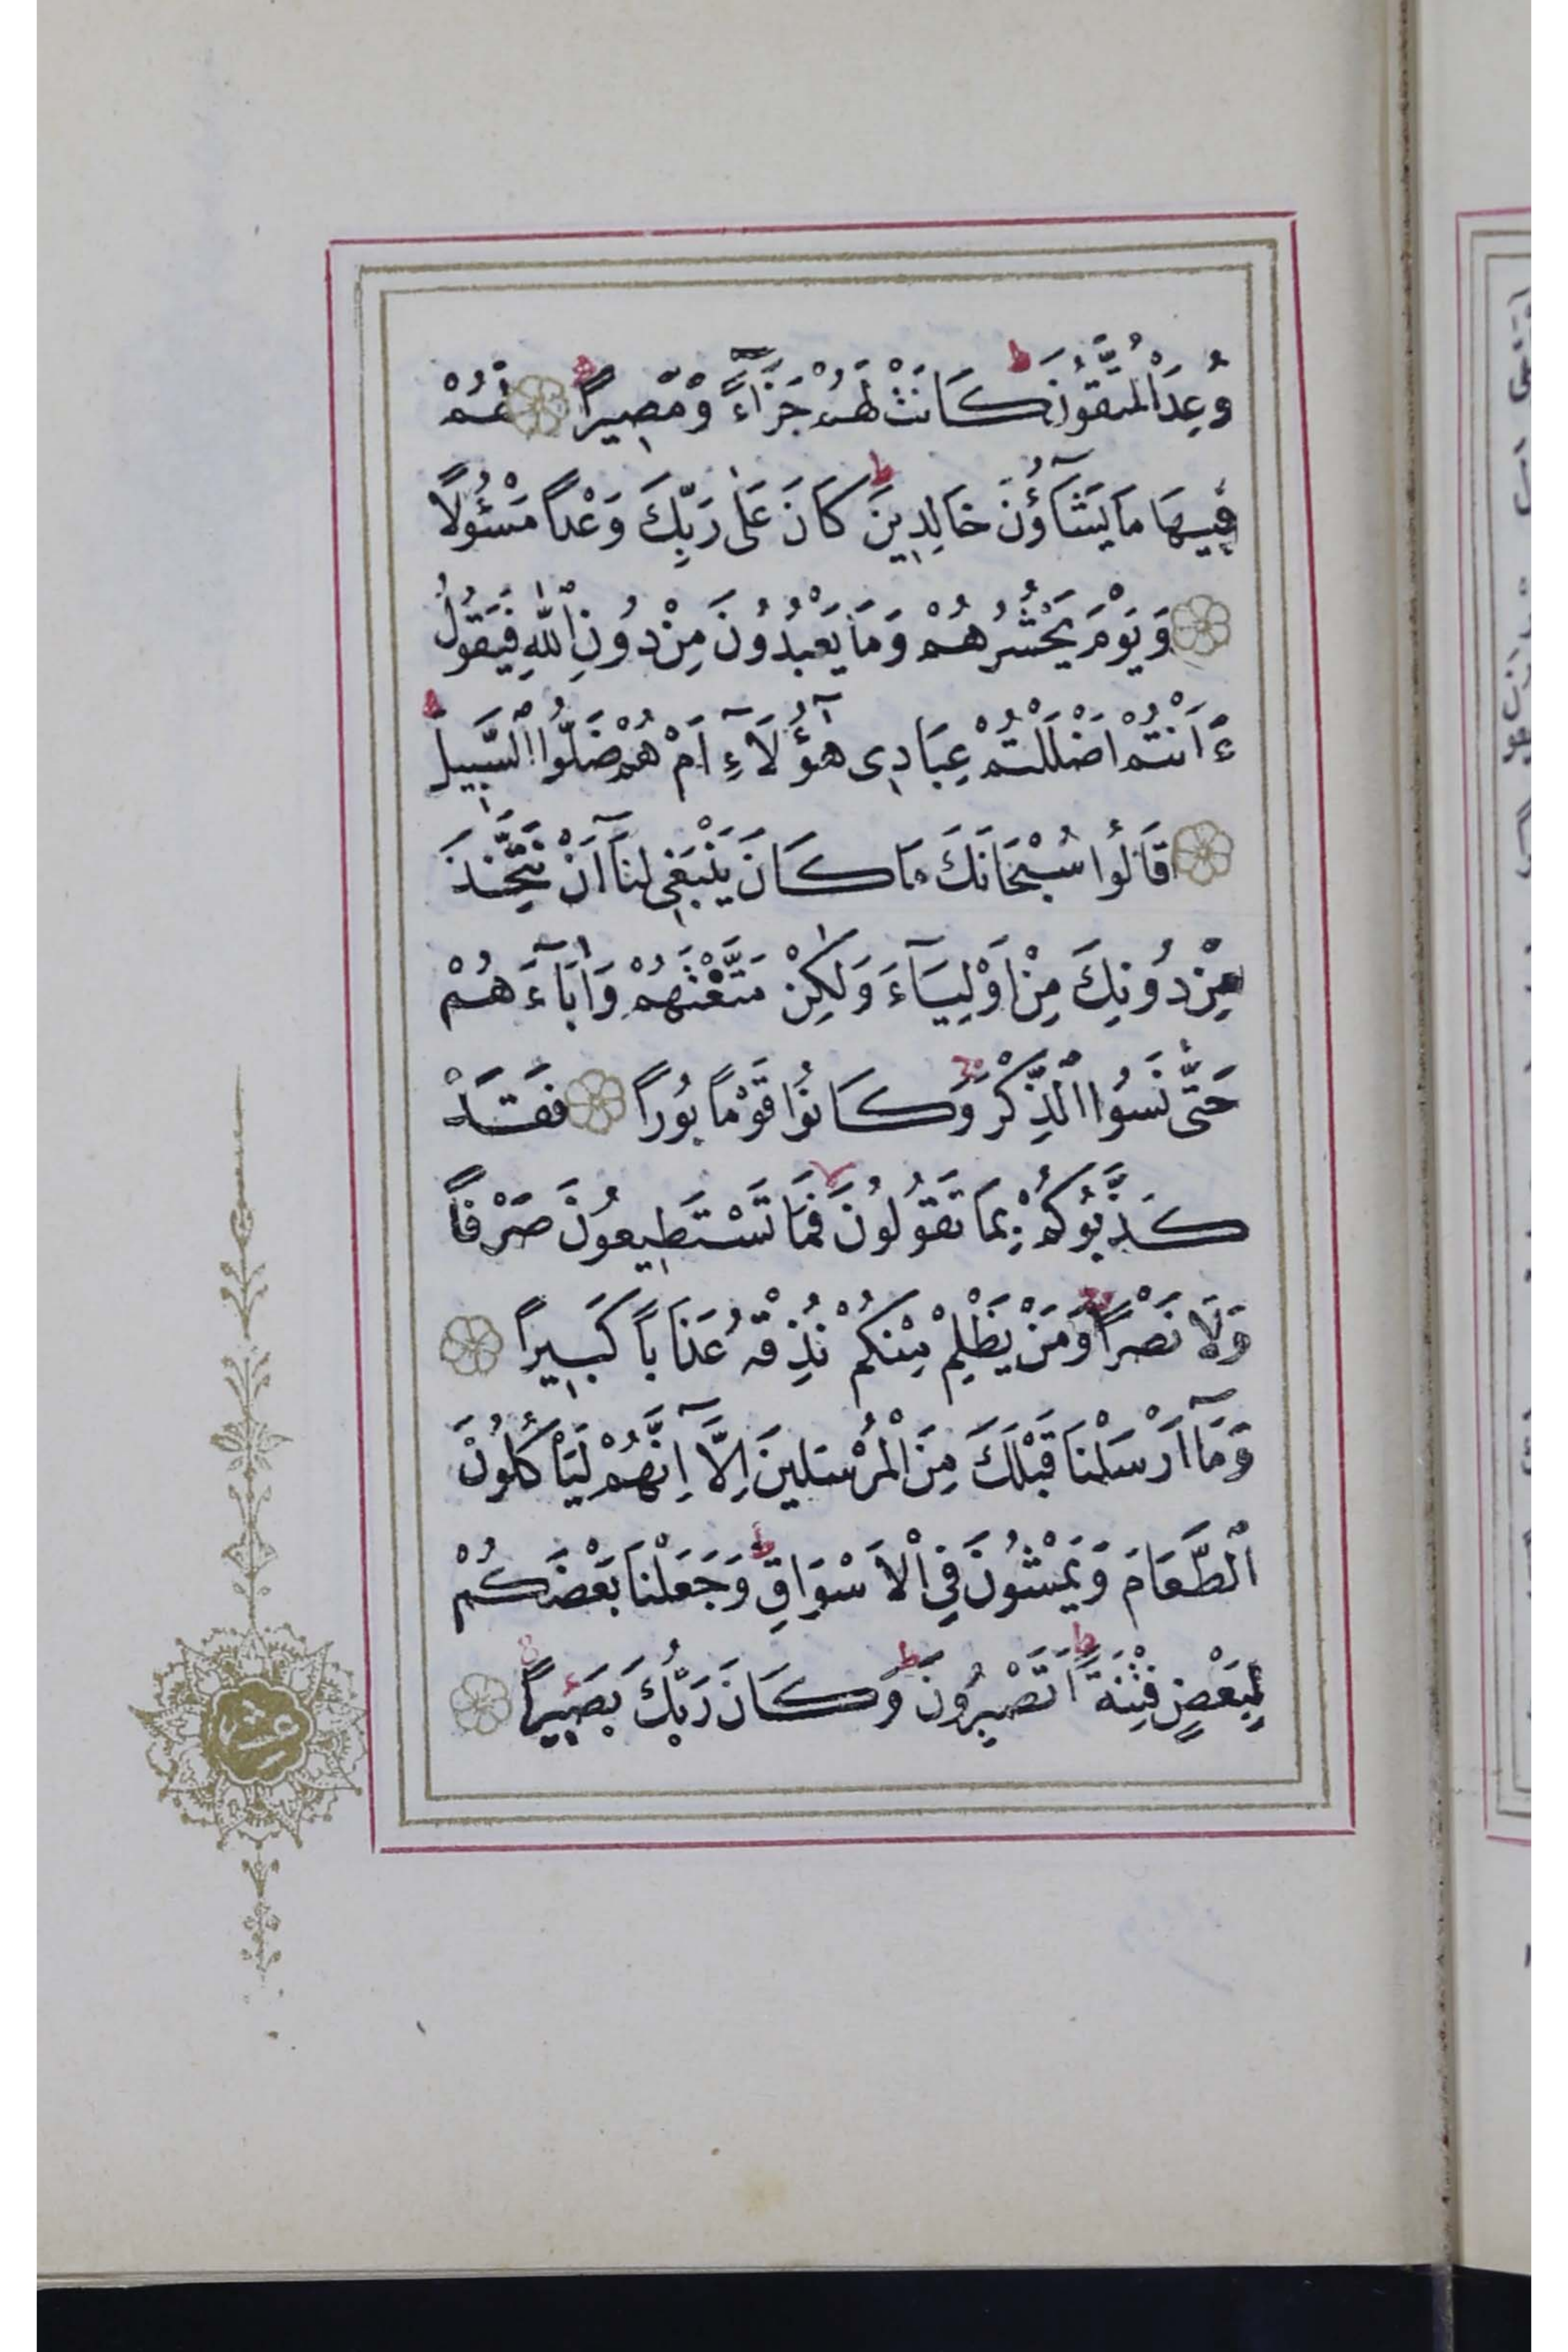 وُعِدَ الْمُتَّقُونَ ط كَانَتْ لَهُمْ جَزَآءً وَمَصِيرًا لَهُمْ
فِيهَا مَا يَشَآؤُنَ خَالِدِينَ ط كَانَ عَلٰى رَبِّكَ وَعْدًا مَسْئُولًا
وَيَوْمَ يَحْشُرُهُمْ وَمَا يَعْبُدُونَ مِنْ دُونِ اللّٰهِ فَيَقُولُ
ءَاَنْتُمْ اَضْلَلْتُمْ عِبَادِى هٰٓؤُلَآءِ اَمْ هُمْ ضَلُّوا السَّبِيلَ ط
قَالُوا سُبْحَانَكَ مَا كَانَ يَنْبَغِى لَنَآ اَنْ نَتَّخِذَ
مِنْ دُونِكَ مِنْ اَوْلِيَآءَ وَلٰكِنْ مَتَّعْتَهُمْ وَاٰبَآءَهُمْ
حَتّٰى نَسُوا الذِّكْرَ وَكَانُوا قَوْمًا بُورًا فَقَدْ
كَذَّبُوكُمْ بِمَا تَقُولُونَ لا فَمَا تَسْتَطِيعُونَ صَرْفًا
وَلَا نَصْرًا وَمَنْ يَظْلِمْ مِنْكُمْ نُذِقْهُ عَذَابًا كَبِيرًا
وَمَآ اَرْسَلْنَا قَبْلَكَ مِنَ الْمُرْسَلِينَ اِلَّآ اِنَّهُمْ لَيَأْكُلُونَ
الطَّعَامَ وَيَمْشُونَ فِى الْاَسْوَاقِ ط وَجَعَلْنَا بَعْضَكُمْ
لِبَعْضٍ فِتْنَةً ط اَتَصْبِرُونَ ط وَكَانَ رَبُّكَ بَصِيرًا